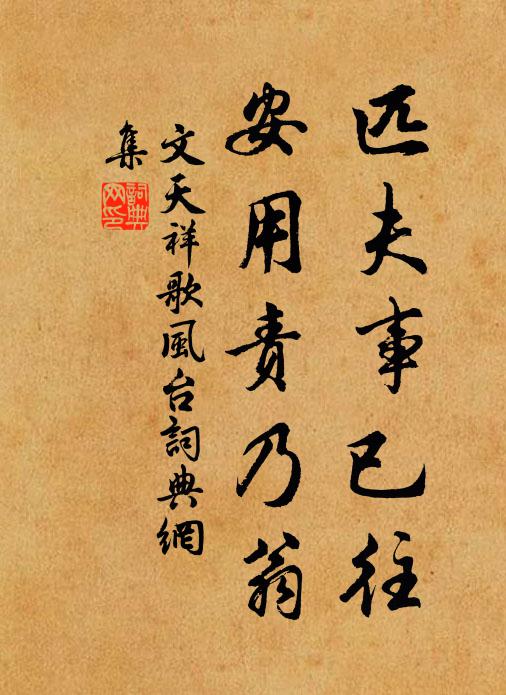 匹夫事已往
安用責乃翁
文天祥歌風台詞典網
集
詞典
网印